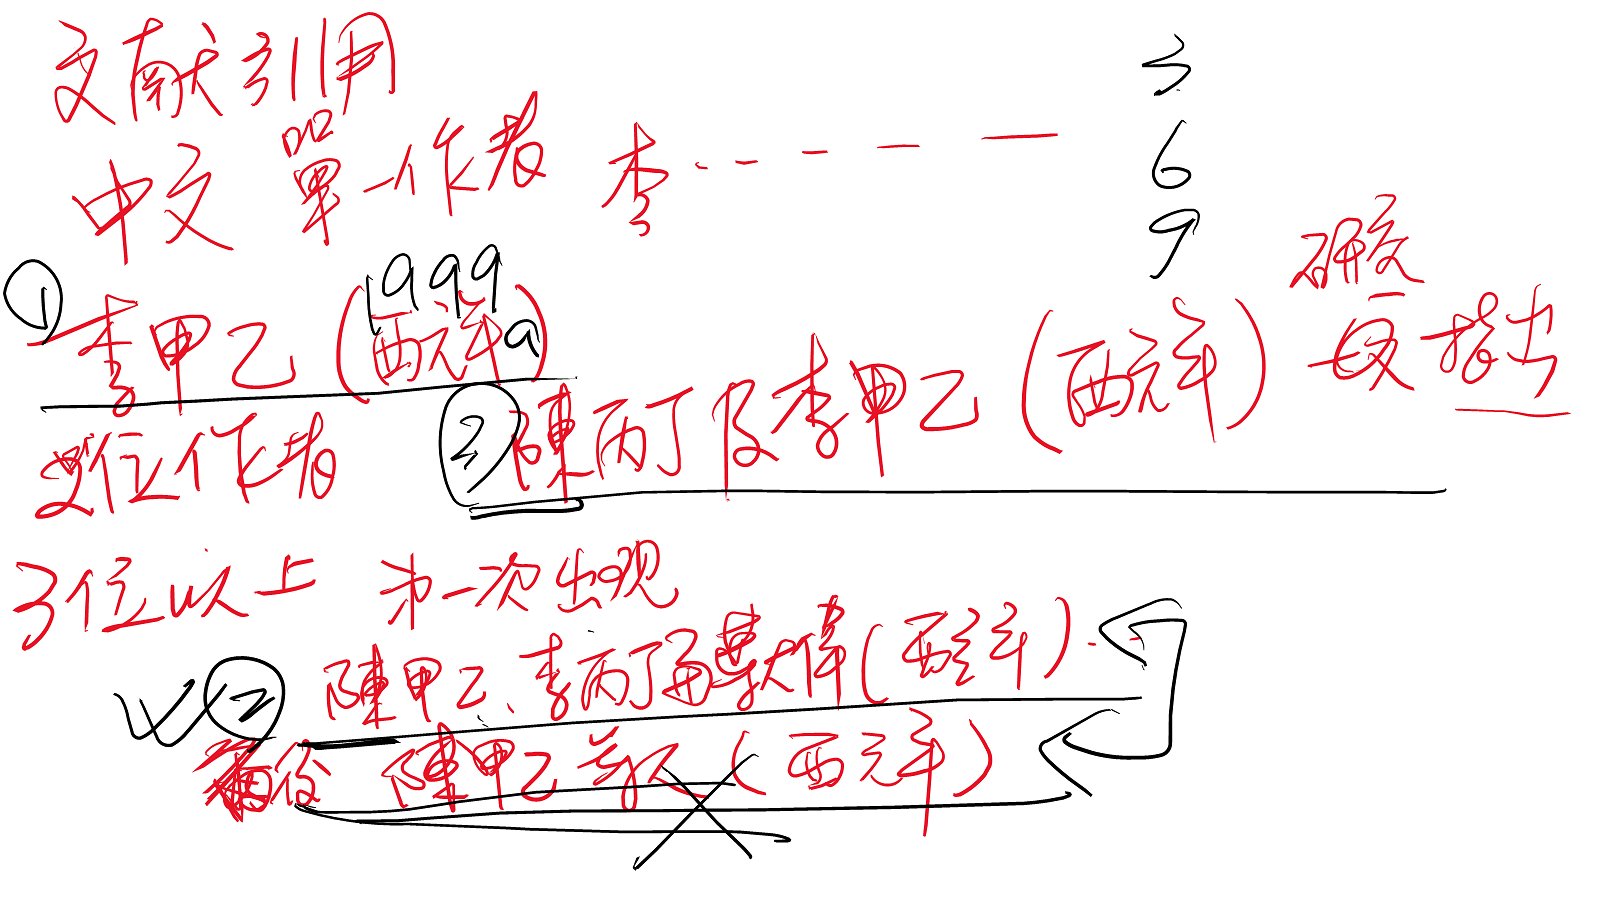 文献引用
中文 單一作者 李
3
6
9
①
1999
李甲乙(西元年a)
研究
指出
雙位作者
② 陳丙丁及李甲乙(西元年)
3位以上 第一次出现
② 陳甲乙、李丙丁與黃大偉(西元年)
後 陳甲乙等人(西元年)